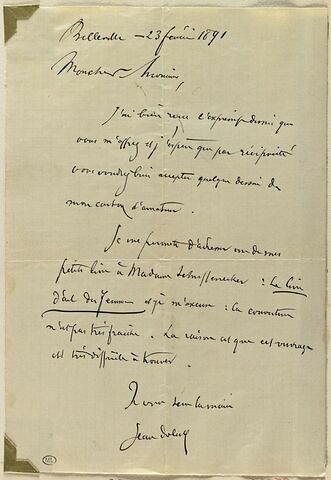 Belleville – 23 février 1891
Mon cher Monsieur,
J'ai bien reçu l'expressif dessin que
vous m'offrez et j'espère que par réciprocité
vous voudrez bien accepter quelque dessin de
mon carton d'amateur.
Je me permets d'adresser un de mes
petits livres à Madame Schuffenecker : Le livre
d'art des femmes et je m'excuse : la couverture
n'est pas très fraiche. La raison est que cet ouvrage
est très difficile à trouver.
Je vous serre la main
Jean Dolent
ML